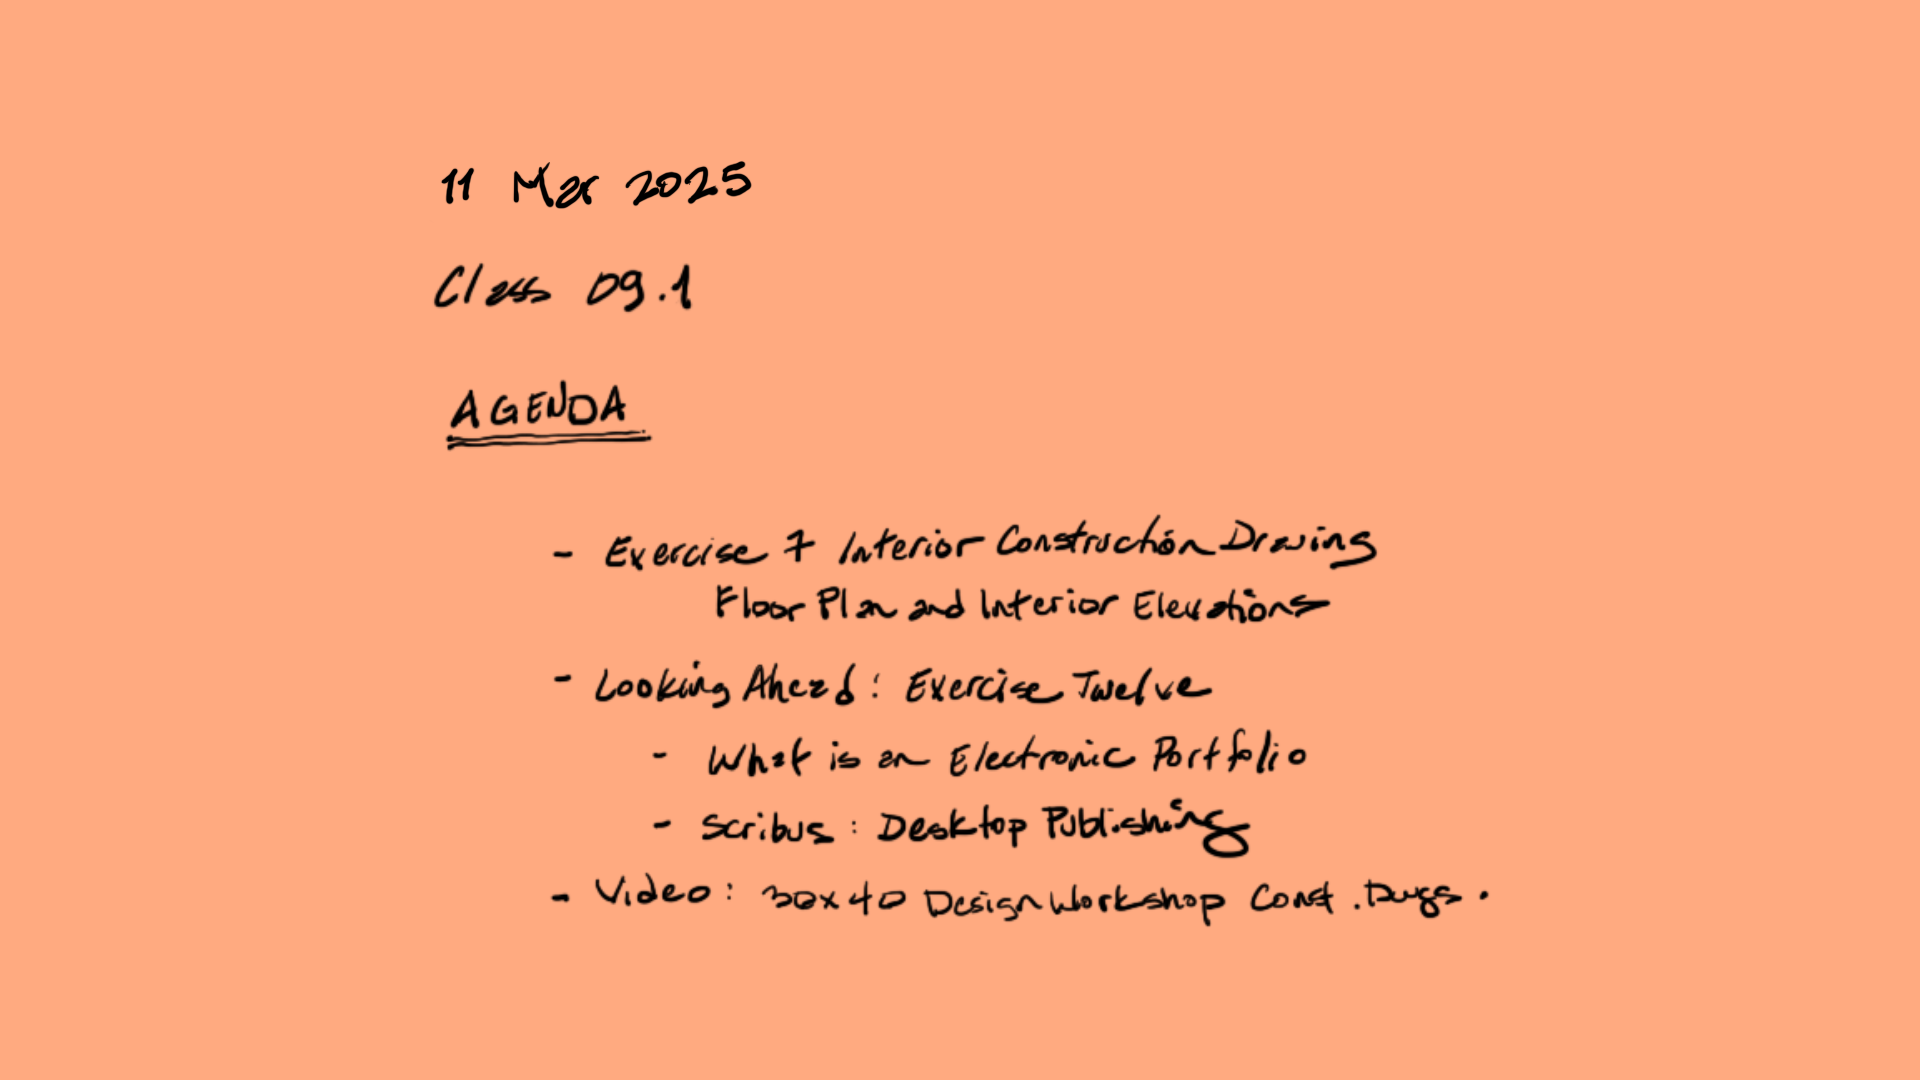 11 Mar 2025
Class 09.1
AGENDA
- Exercise 7 Interior Construction Drawing
Floor Plan and Interior Elevations
- Looking Ahead: Exercise Twelve
- What is an Electronic Portfolio
- Scribus: Desktop Publishing
- Video: 30x40 Design Workshop Const. Dwgs.